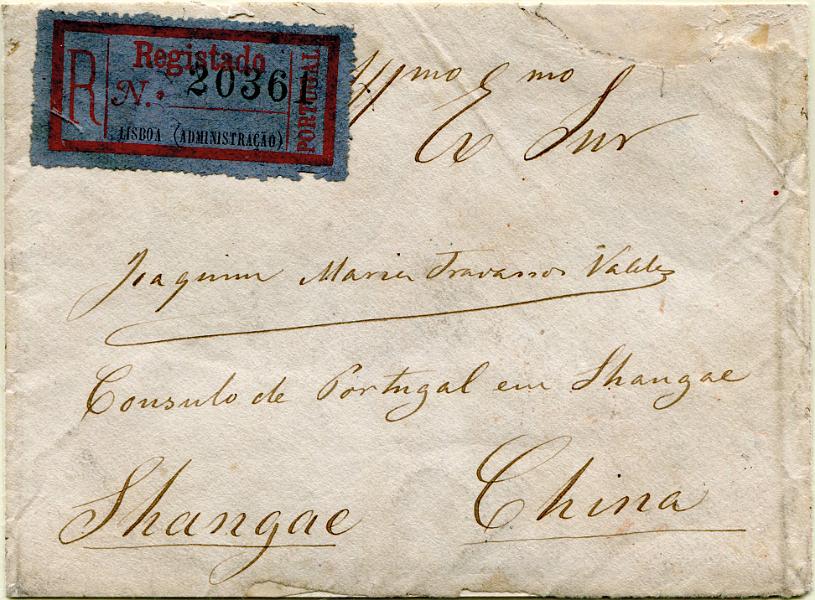 Registado
R N.º 20361 PORTUGAL
LISBOA (ADMINISTRAÇÃO)
Illmo Exmo Snr
Joaquim Maria Travassos Valdez
Consulo de Portugal em Shangae
Shangae China